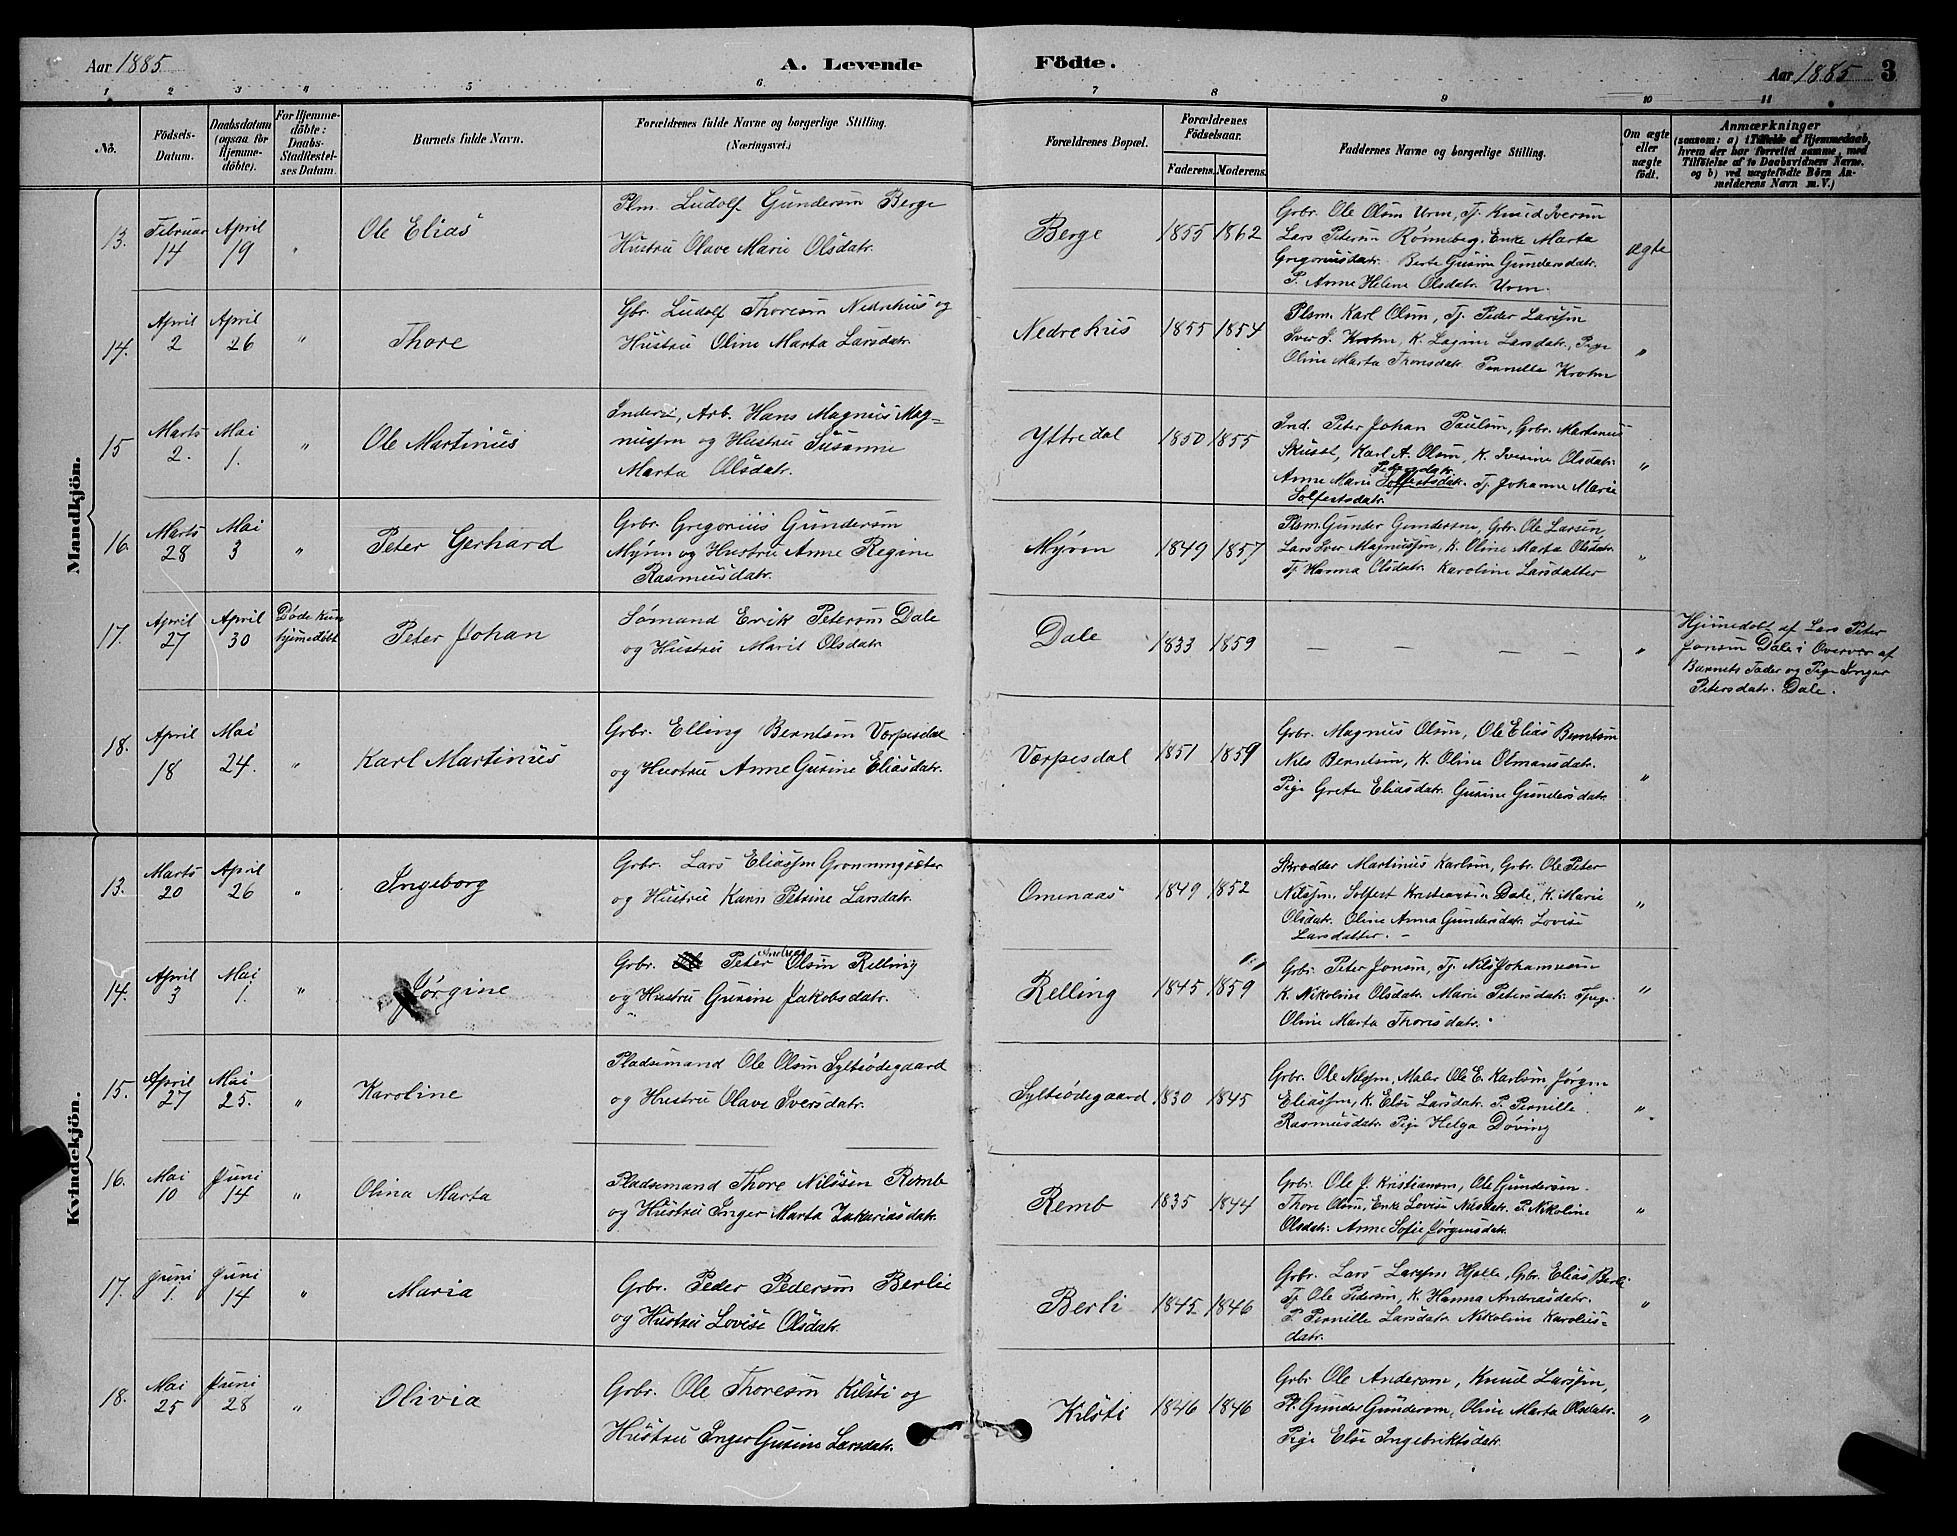 Aar 1885. A. Levende Födte. Aar 1885 3
1 2 3 4 5 6 7 8 9 10 11
No. Födsels-Datum. Daabsdatum (ogsaa for Hjemmedöbte). For Hjemmedöbte: Daabs-Stadfestelses Datum. Barnets fulde Navn. Forældrenes fulde Navne og borgerlige Stilling. (Næringsvei.) Forældrenes Bopæl. Forældrenes Födselsaar. Faderens. Moderens. Faddernes Navne og borgerlige Stilling. Om ægte eller uægte födt. Anmærkninger (saasom: a) i Tilfælde af Hjemmedaab, hvem der har forrettet samme, med Tilföielse af to Daabsvidners Navne. og b) ved uægtefödte Börn Anmelderens Navn m. V.)
Mandkjön.
13. Februar 14 April 19 " Ole Elias
Plm. Ludolf Gundersøn Berge
Hustru Olave Marie Olsdatr.
Berge 1855 1862
Grbr. Ole Olsøn Urm, Tj. Knud Iversøn
Lars Petersøn Rønneberg. Enke Marta
Gregoriusdatr. Berte Gurine Gundersdatr.
P. Anne Helene Olsdatr. Urm.
ægte
14. April 2 April 26 " Thore
Gbr. Ludolf Thoresøn Nedrehus og
Hustru Oline Marta Larsdatr.
Nedrehus 1855 1854
Plsm. Karl Olsøn, Tj. Peder Larssøn
Iver J. Krohn, K. Lagine Larsdatr, Pige
Oline Marta Thoresdatr. Pernille Krohn
"
15 Marts 2. Mai 1. " Ole Martinus
Inders, Arb. Hans Magnus Mag-
nussøn og Hustru Susanne
Marta Olsdatr.
Yttredal 1850 1855
Ind. Peter Johan Paulsøn, Grbr. Martinus
Karl A. Olsøn, K. Iverine Olsdatr.
Petersdatr.
Anne Marie Solfestsdatr. Tj. Johanne Marie
Solfestsdatr.
"
16. Marts 28 Mai 3 " Peter Gerhard
Grbr. Gregorius Gundersøn
Myren og Hustru Anne Regine
Rasmusdatr.
Myren 1849 1857
Plsm. Gunder Gundersøn, Grbr. Ole Larsen,
Lars Iver Magnussøn, K. Oline Marta Olsdatr.
Tj. Hanna Olsdatr. Karoline Larsdatter
"
17. April 27 April 30 Døde kun hjemedøbt Peter Johan
Sømand Erik Petersøn Dale
og Hustru Marit Olsdatr.
Dale 1833 1859 — — — — "
Hjemedøbt af Lars Peter
Jonsøn Dale i Overvær af
Barnets Fader og Pige Inger
Petersdatr. Dale.
18. April 18 Mai 24. " Karl Martinus
Grbr. Elling Berntsøn Værpesdal
og Hustru Anne Gurine Eliasdatr.
Værpesdal 1851 1859
Grbr. Magnus Olsøn, Ole Elias Berntsøn
Nils Berntsøn, K. Oline Olmansdatr.
Pige Grete Eliasdatr. Gurine Gundersdatr.
"
Kvindekjön.
13. Marts 20 April 26 " Ingeborg
Grbr. Lars Eliassøn Grønningsæter
og Hustru Karen Petrine Larsdatr.
Omenaas 1849 1852
Skrædder Martinus Karlsøn, Grbr. Ole Peter
Nilssøn, Solfest Kristiansøn Dale, K. Marie
Olsdatr. Oline Anna Gundersdatr. Lovise
Larsdatter. -
"
14. April 3 Mai 1. " Jørgine
Andreas
Grbr. Peter Olsøn Relling
og Hustru Gurine Jakobsdatr.
Relling 1845 1859
Grbr. Peter Jonsøn, Tj. Nils Johannesøn
K. Nikoline Olsdatr. Marie Petersdatr.
Oline Marta Thoresdatr.
"
15. April 27 Mai 25. " Karoline
Pladsemand Ole Olsøn Sylteødegaard
og Hustru Olave Iversdatr.
Sylteødegaard. 1830 1845
Grbr. Ole Nilssøn, Maler Ole E. Karlsøn, Jørgen
Eliassøn, K. Else Larsdatr. P. Pernille
Rasmusdatr. Pige Helga Døving
"
16. Mai 10 Juni 14 " Olina Marta
Pladsemand Thore Nilssen Remb
og Hustru Inger Marta Zakariasdatr.
Remb 1835 1844
Grbr. Ole J. Kristiansøn, Ole Gundersøn.
Thore Olsøn, Enke Lovise Nilsdatr. P. Nikoline
Olsdatr. Anne Sofie Jørgensdatr.
"
17. Juni 1. Juni 14 " Maria
Grbr. Peder Pedersøn Berlie
og Hustru Lovise Olsdatr.
Berli 1845 1846
Grbr. Lars Larssøn Hjelle, Grbr. Elias Berli
Tj. Ole Pedersøn, K. Hanna Andreasdatr.
P. Pernille Larsdatr. Nikoline Karolus-
datr.
"
18. Mai 25 Juni 28 " Olivia
Grbr. Ole Thoresøn Kilsti og
Hustru Inger Gurine Larsdatr.
Kilsti 1846 1846
Grbr. Ole Andersøn, Knud Larssøn,
Pl. Gunder Gundersøn, Oline Marta Olsdatr.
Pige Else Ingebriktsdatr.
"